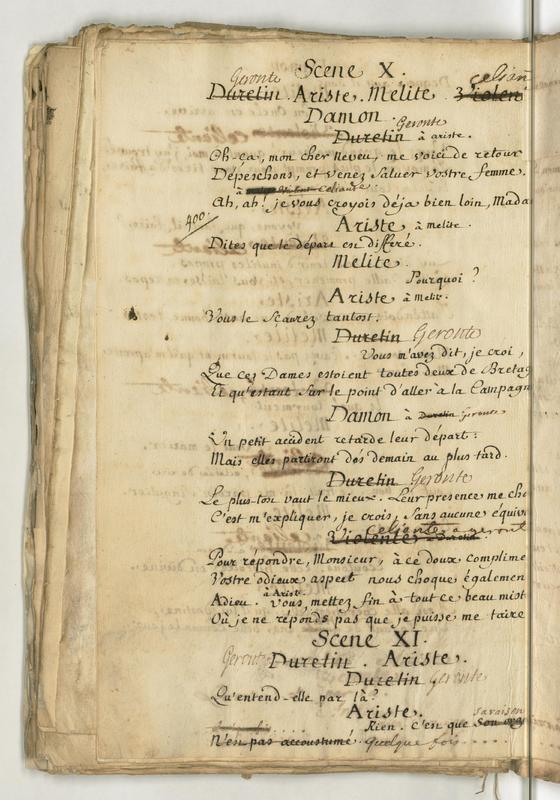 Scene X.
Geronte celian
Duretin. Ariste. Melite.
Damon.
Geronte
Duretin à ariste.
Oh-ça, mon cher Neveu, me voici de retour
Dépeschons, et venez saluer vostre femme.
à Celiante.
Ah, ah! je vous croyois déja bien loin, Mada
400
Ariste à melite.
Dites que le départ en differé.
Melite.
Pourquoi?
Ariste à Melit.
Vous le sçaurez tantost.
Duretin Geronte
Vous m'avez dit, je croi,
Que ces Dames estoient toutes deux de Bretag
Et qu'estant sur le point d'aller à la Campagn
Damon à Duretin Geronte
Un petit accident retarde leur départ:
Mais elles partiront dés demain au plus tard.
Duretin Geronte
Le plus tost vaut le mieux. Leur presence me cho
C'est m'expliquer, je crois, sans aucune équiv
Celiante a geront
Violente à Duretin
Pour répondre, Monsieur, à ce doux complime
Vostre odieux aspect nous choque égalemen
à Arist.
Adieu. Vous, mettez fin à tout ce beau mist
Où je ne réponds pas que je puisse me taire
Scene XI.
Geronte Duretin. Ariste.
Duretin geronte
Qu'entend-elle par là?
Ariste.
sa raison
Rien. C'en que Son
N'en pas accoustumé. Quelque fois.....